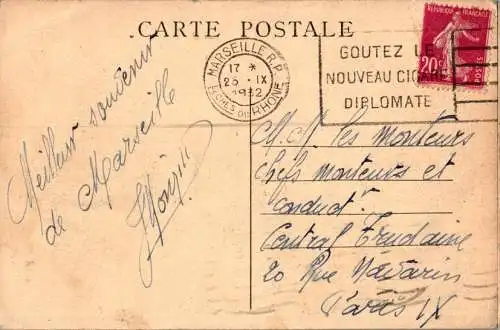 CARTE POSTALE
MARSEILLE R.P.
17 *
25 · IX
1932
BCHES DU RHONE
GOUTEZ LE
NOUVEAU CIGARE
DIPLOMATE
REPUBLIQUE FRANÇAISE
20c
POSTES
Meilleur souvenir
de Marseille
M.M. les monteurs
chefs monteurs et
conductrs
Central Trudaine
20 Rue Navarin
Paris IX